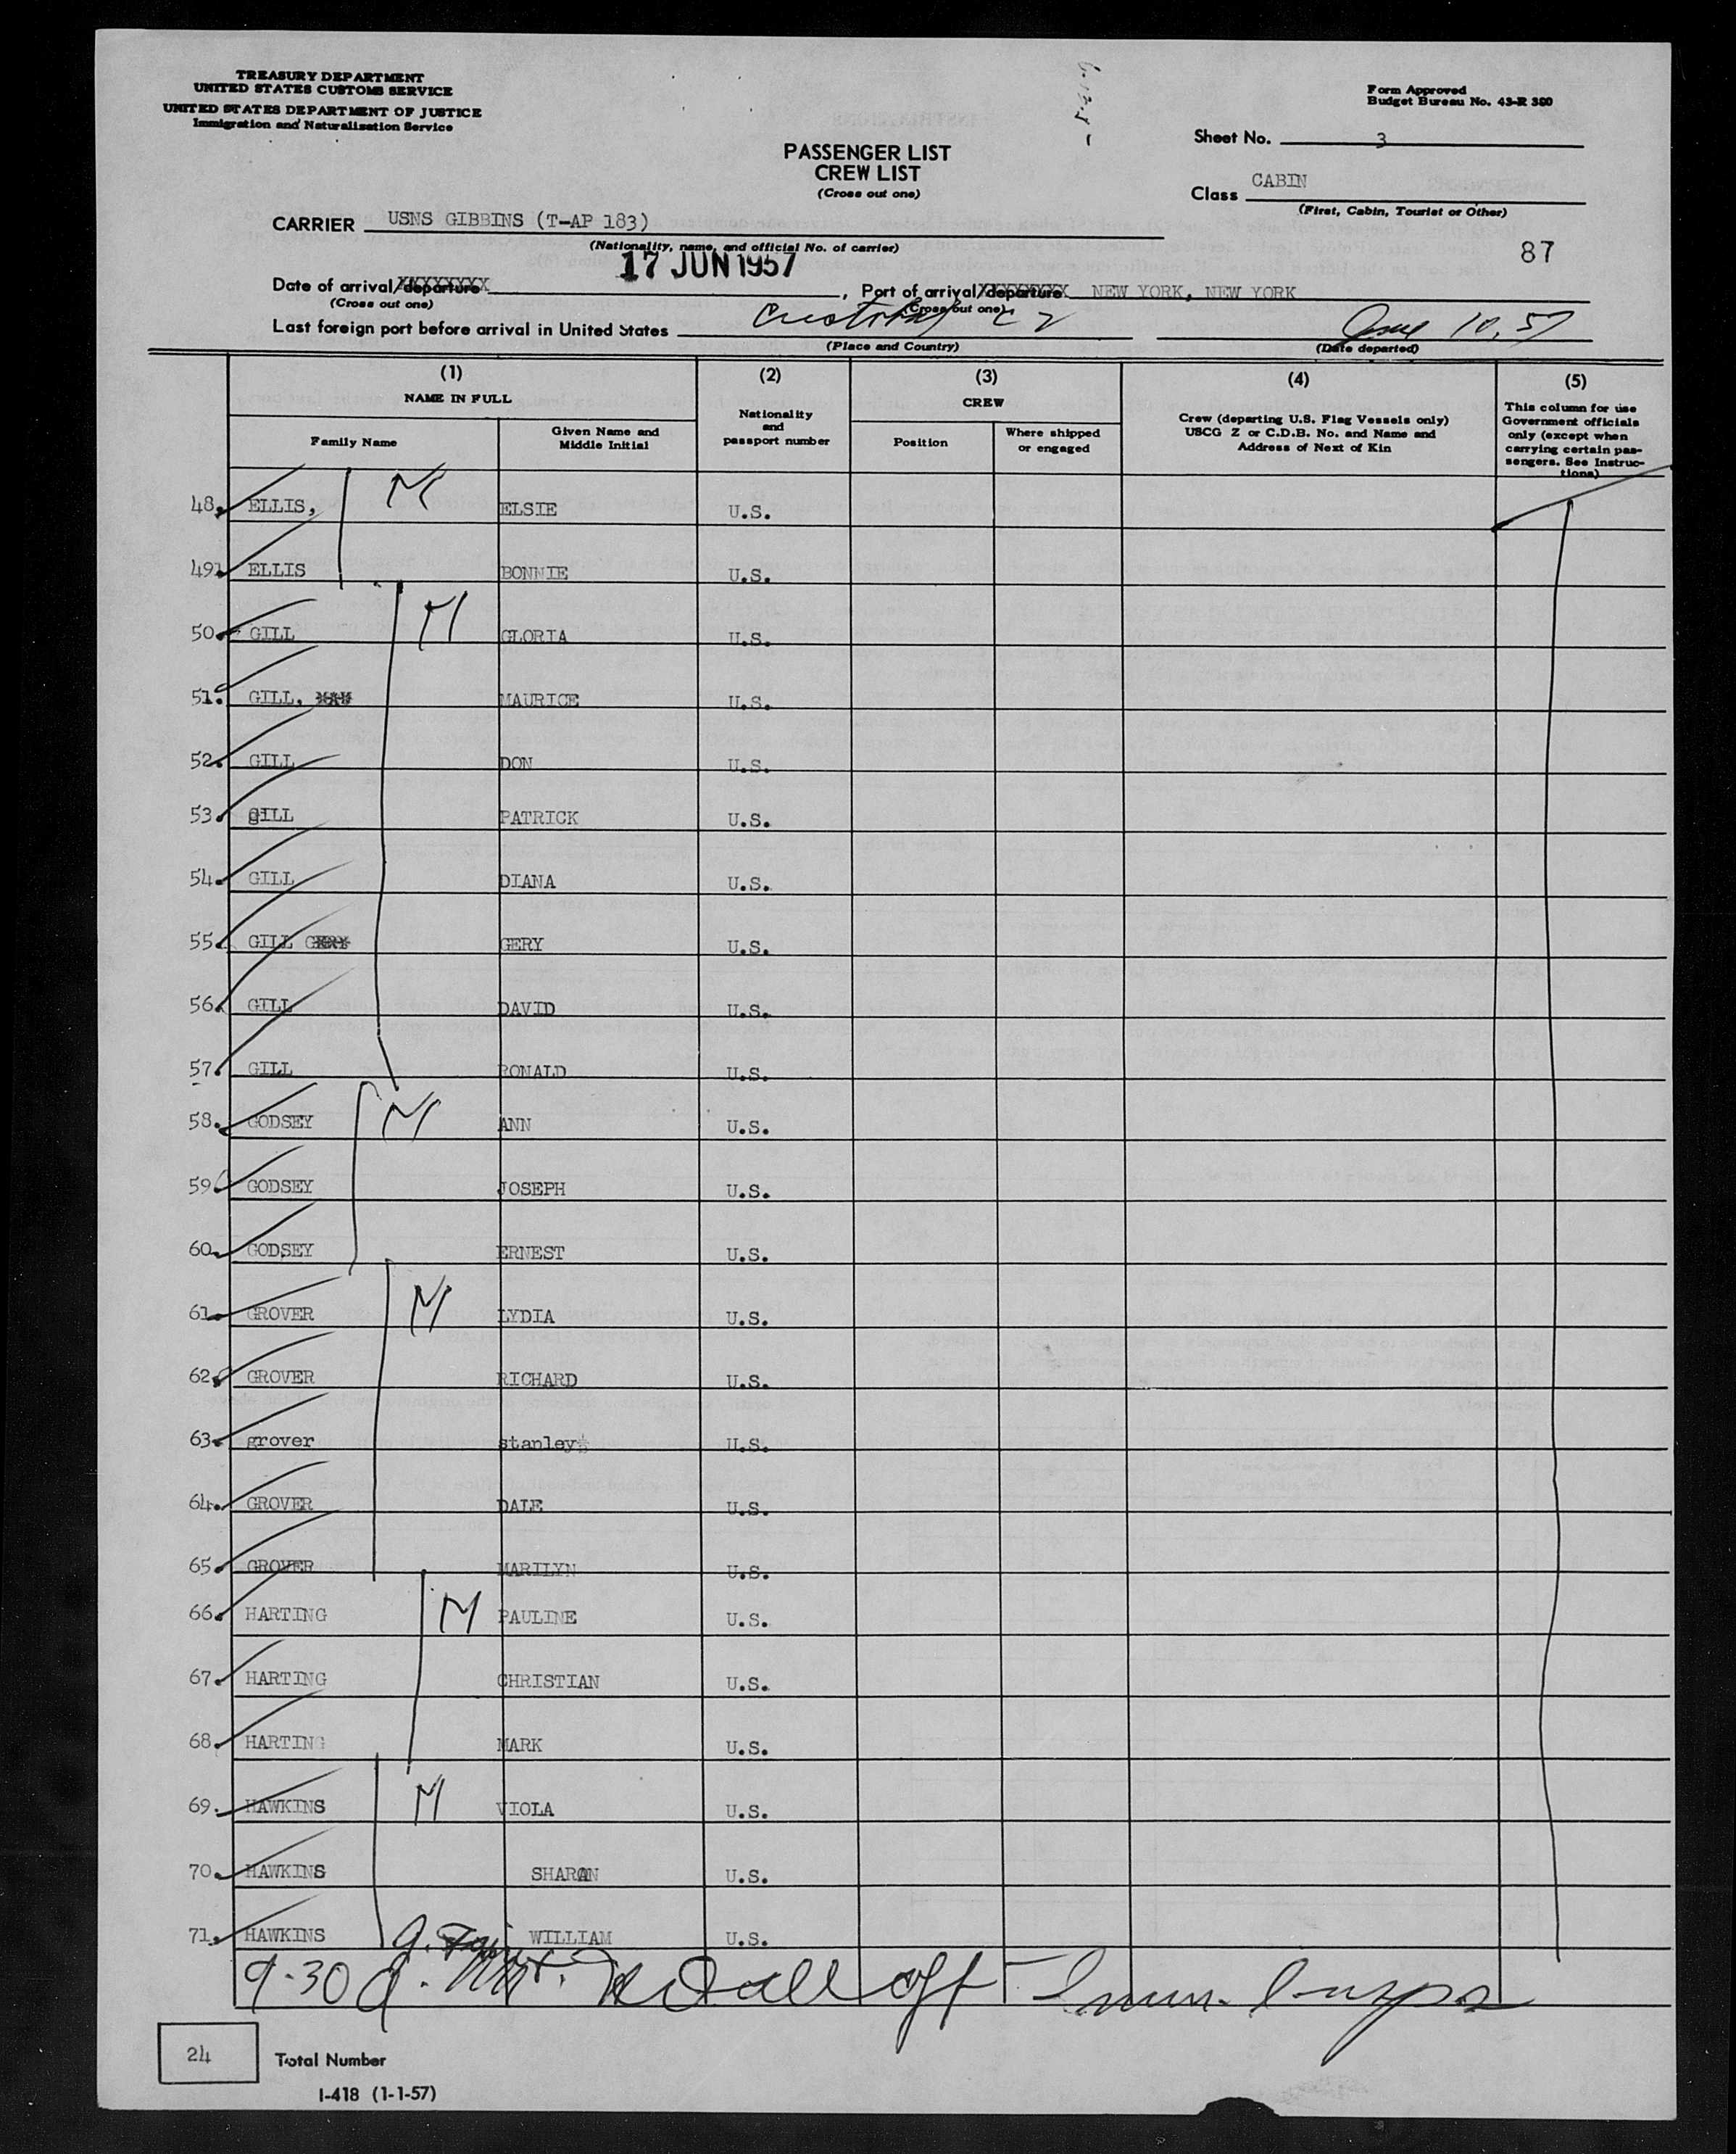 TREASURY DEPARTMENT
UNITED STATES CUSTOMS SERVICE
UNITED STATES DEPARTMENT OF JUSTICE
Immigration and Naturalization Service
Form Approved
Budget Bureau No. 43-R 380
Sheet No. 3
PASSENGER LIST
CREW LIST
(Cross out one)
Class CABIN
(First, Cabin, Tourist or Other)
CARRIER USNS GIBBINS (T-AP 183)
(Nationality, name, and official No. of carrier)
87
17 JUN 1957
Date of arrival/departure , Port of arrival/departure NEW YORK, NEW YORK
(Cross out one) (Cross out one)
Last foreign port before arrival in United States Cristobal C Z June 10, 57
(Place and Country) (Date departed)
(1) (2) (3) (4) (5)
NAME IN FULL
Family Name
Given Name and Middle Initial
Nationality and passport number
CREW
Position
Where shipped or engaged
Crew (departing U.S. Flag Vessels only) USCG Z or C.D.B. No. and Name and Address of Next of Kin
This column for use Government officials only (except when carrying certain passengers. See Instructions)
48. ELLIS, M ELSIE U.S.
49. ELLIS BONNIE U.S.
50. GILL M GLORIA U.S.
51. GILL, MAURICE U.S.
52. GILL DON U.S.
53. GILL PATRICK U.S.
54. GILL DIANA U.S.
55. GILL GERY U.S.
56. GILL DAVID U.S.
57. GILL RONALD U.S.
58. GODSEY M ANN U.S.
59. GODSEY JOSEPH U.S.
60. GODSEY ERNEST U.S.
61. GROVER M LYDIA U.S.
62. GROVER RICHARD U.S.
63. grover stanley U.S.
64. GROVER DALE U.S.
65. GROVER MARILYN U.S.
66. HARTING M PAULINE U.S.
67. HARTING CHRISTIAN U.S.
68. HARTING MARK U.S.
69. HAWKINS M VIOLA U.S.
70. HAWKINS SHARON U.S.
71. HAWKINS WILLIAM U.S.
9-30 a.m.
24 Total Number
I-418 (1-1-57)